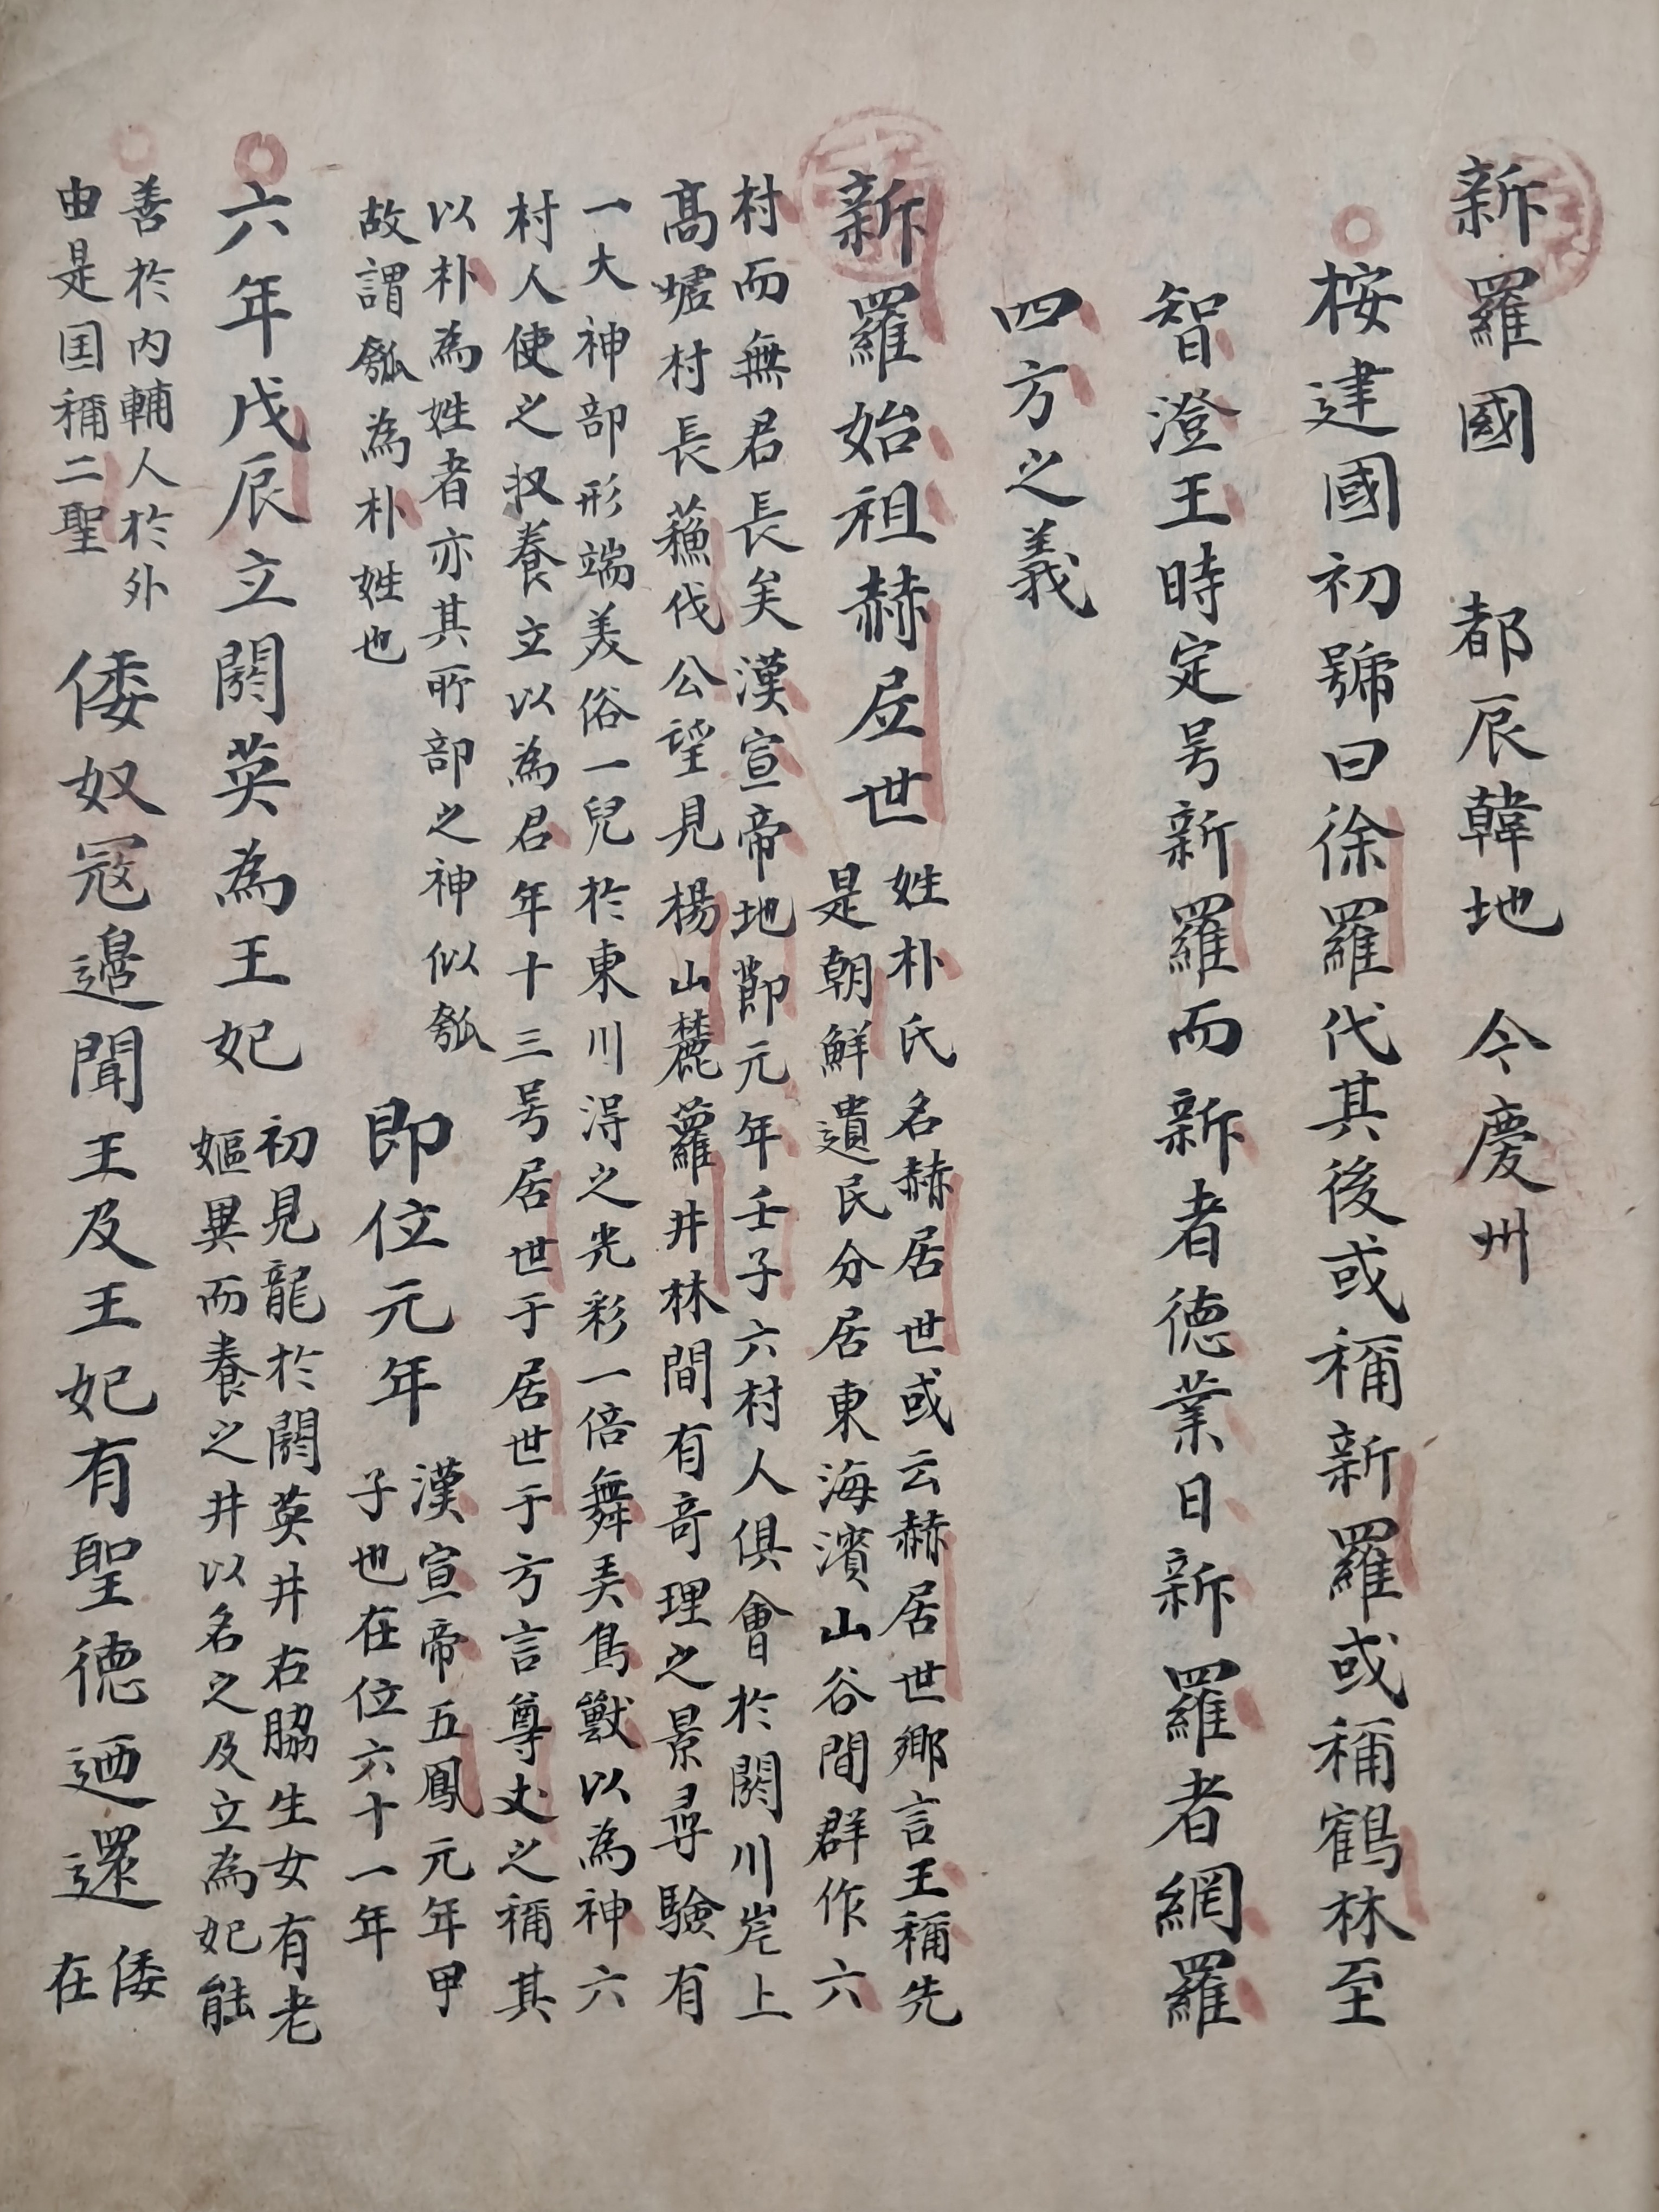 新羅國　都辰韓地　今慶州
桉建國初號曰徐羅代其後或稱新羅或稱鶴林至
智澄王時定号新羅而新者德業日新羅者網羅
四方之義
新羅始祖赫居世
姓朴氏名赫居世或云赫居世鄉言王稱先
是朝鮮遺民分居東海濱山谷間群作六
村而無君長矣漢宣帝地節元年壬子六村人俱會於閼川岸上
高墟村長蘓伐公望見楊山麓蘿井林間有竒理之景尋驗有
一大神部形端美俗一兒於東川淂之光彩一倍舞美鳥獸以為神六
村人使之収養立以為君年十三号居世于居世于方言尊丈之稱其
以朴為姓者亦其所部之神似瓠
故謂瓠為朴姓也
即位元年
漢宣帝五鳳元年甲
子也在位六十一年
六年戊辰立閼英為王妃
初見龍於閼英井右脇生女有老
嫗異而養之井以名之及立為妃能
善於內輔人於外
由是国稱二聖
倭奴冦邉聞王及王妃有聖德迺還
倭
在